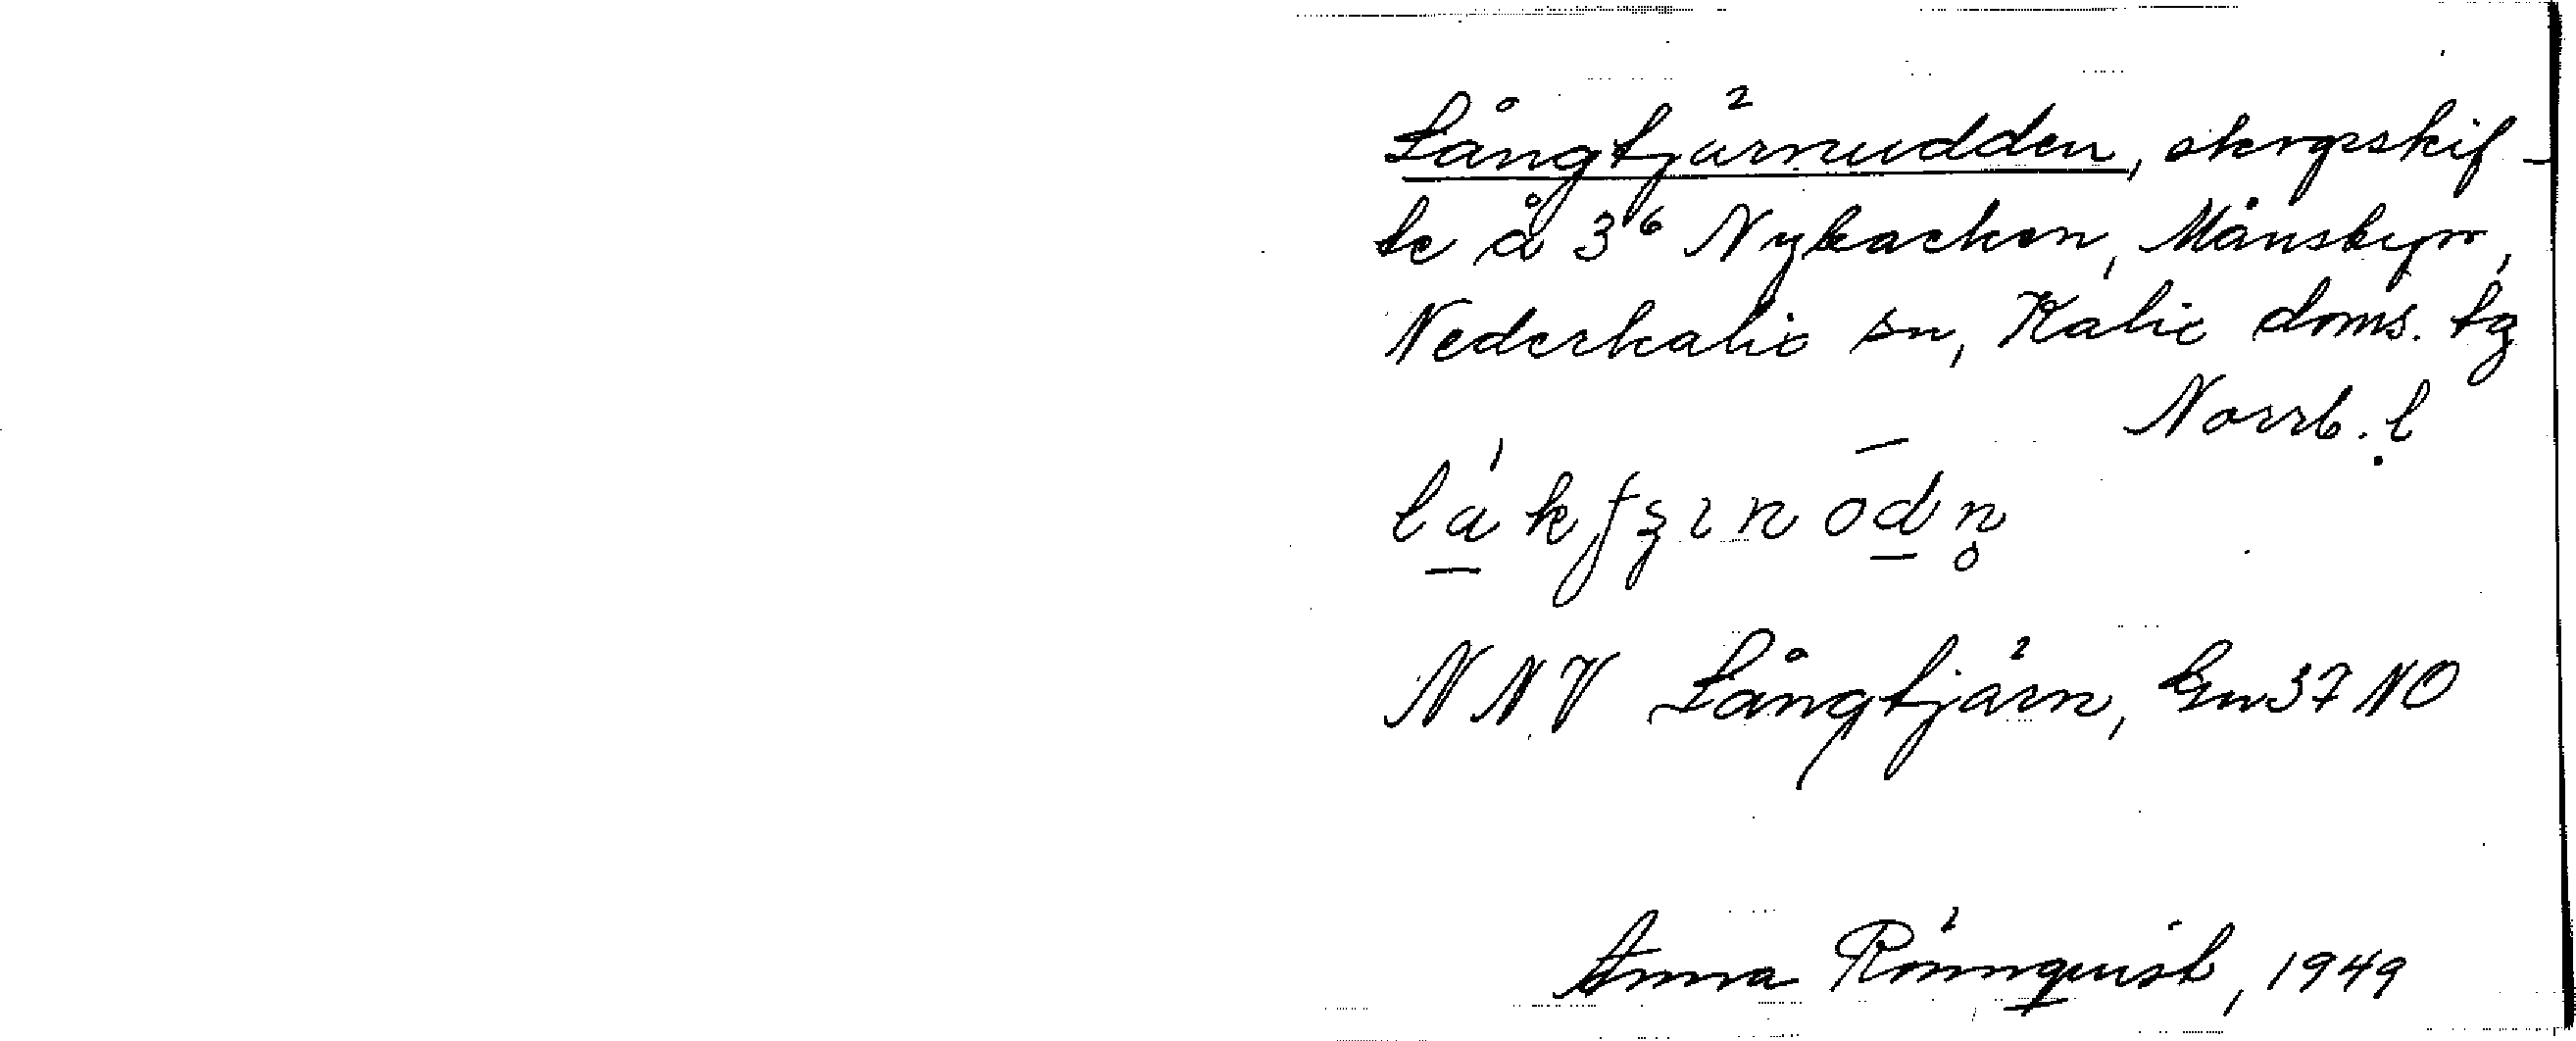 Långtjärnudden, skogsskif-
te å 3⁶ Nybacken, Månsbyn,
Nederkalix sn, Kalix doms. tg
Norrb. l
NNV Långtjärn, Gn 37 NO
Anna Rönnqvist, 1949